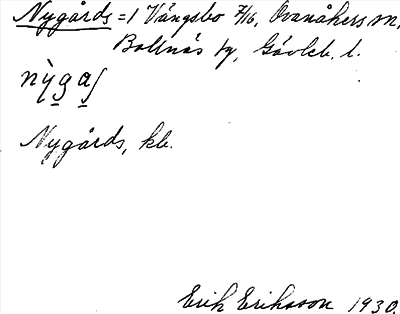 Nygårds = 1 Vängsbo 7/16, Ovanåkers sn,
Bollnäs fg, Gävleb. l.
nỳgaʃ
Nygårds, kb.
Erik Eriksson 1930.